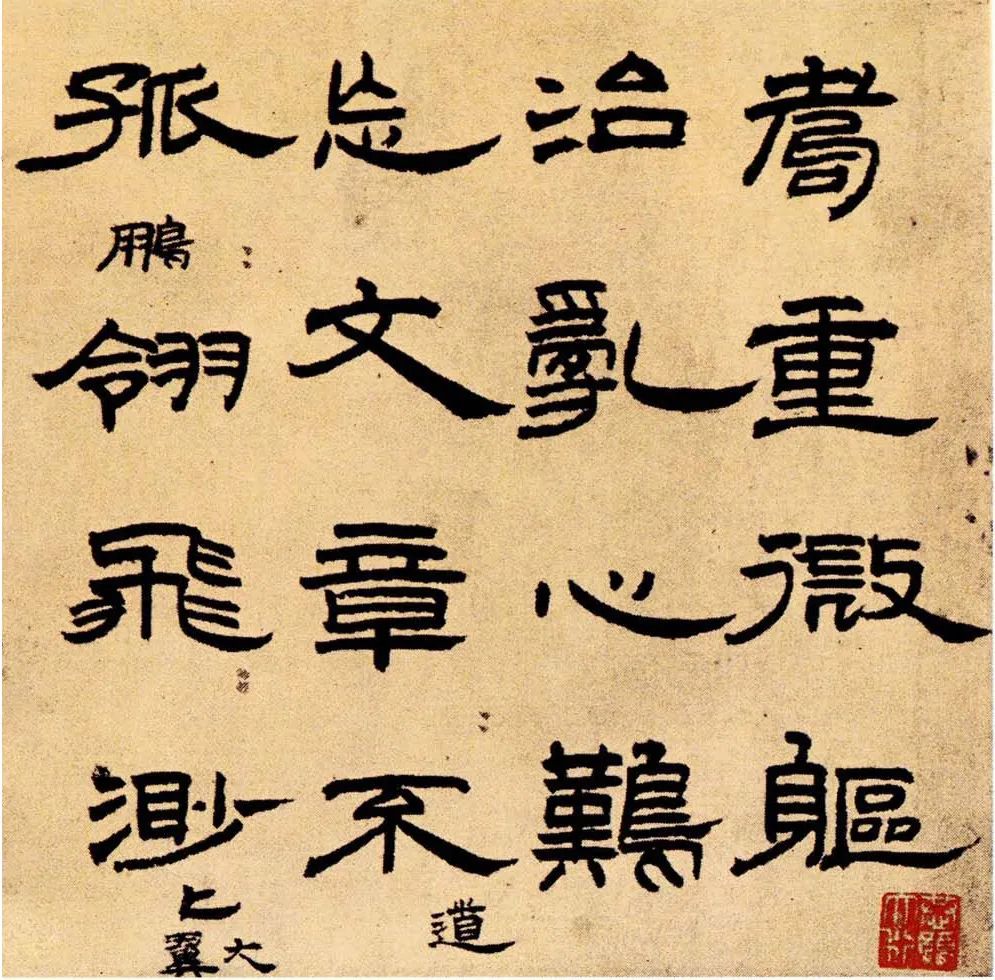 重微軀
治亂心難
忘文章不道
孤鵬翎飛渺〻大翼